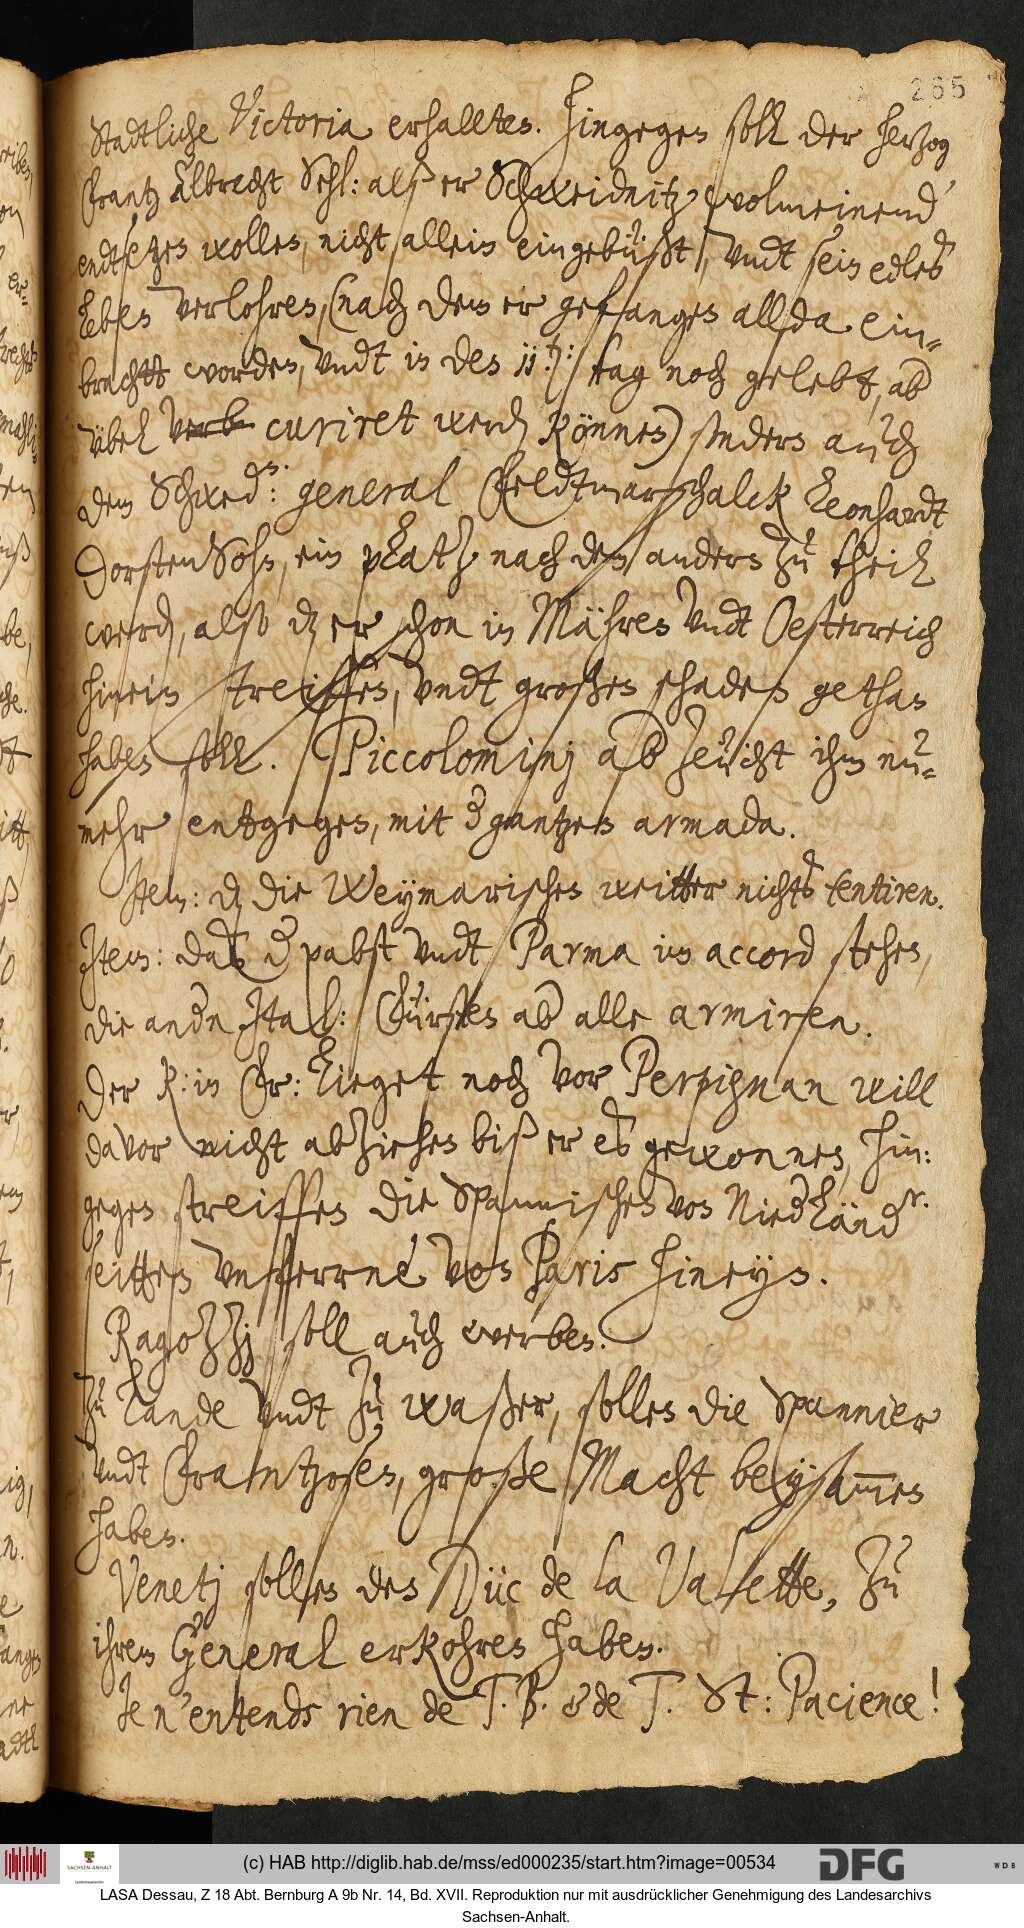 265
Stadtliche Victoria erhalten. Hingegen soll der Hertzog
Frantz Albrecht Sehl: alß er Schweidnitz, wolmeinend
endtsetzen wollen, nicht allein eingebüßt, undt sein edles
Leben verlohren, (nach dem er gefangen allda ein-
bracht worden, undt in den 11.ten: tag noch gelebt, ab
übel verb curiret werden können) sondern auch
dem Schwed.n: general Feldtmarschalck Leonhardt
DorstenSohn, ein platz nach dem andern zu theil
werden, also daß er schon in Mähren undt Oesterreich
hinein streiffen, undt großen schaden gethan
haben soll. Piccolominj ab zeücht ihm nu-
mehr entgegen, mit der gantzen armada.
Item: daß die Weymarischen weitter nichts tentiren.
Item: daß der pabst undt Parma im accord stehen,
die andern Ital: Fürsten aber alle armiren.
Der K: in Fr: lieget noch vor Perpignan will
davor nicht abziehen biß er es gewonnen, hin:
gegen streiffen die Spannischen von Niederländr.
seitten unferrne von Paris hineyn.
Ragozzj soll auch werben.
Zu Lande undt zu waßer, sollen die Spannier
undt Frantzosen, große Macht beysammen
haben.
Venetj sollen den Düc de la Valette, zu
ihrem General erkohren haben.
Je n'entends rien de T. B. & de T. St: Pacience!
(c) HAB http://diglib.hab.de/mss/ed000235/start.htm?image=00534
SACHSEN-ANHALT
DFG
WDB
LASA Dessau, Z 18 Abt. Bernburg A 9b Nr. 14, Bd. XVII. Reproduktion nur mit ausdrücklicher Genehmigung des Landesarchivs
Sachsen-Anhalt.